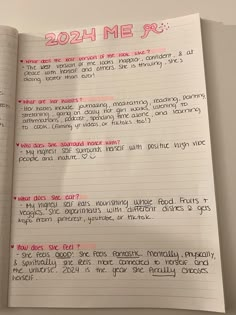 2024 ME
What does the best version of me look like?
- The best version of me looks happy, confident, & at
peace with herself and others. She is thriving, she's
doing better than ever!
What are her habits?
- Her habits include journaling, meditating, reading, praying,
stretching, going on daily hot girl walks, listening to
affirmations, podcast, spending time alone, and learning
to cook. (Filming yt videos or tiktoks, too!)
Who does she surround herself with?
- My highest self surrounds herself with positive high vibe
people and nature.
What does she eat?
- My highest self eats nourishing whole food. Fruits +
Veggies. She experiments with different dishes & gets
from pinterest, youtube, or tiktok.
How does she feel?
- She feels good! She feels fantastic. Mentally, physically,
& spiritually she feels more connected to herself and
the universe. 2024 is the year she finally chooses
herself.